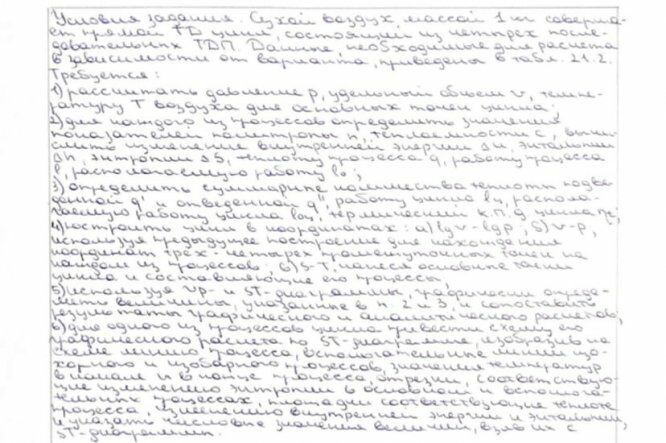 Условия задания. Сухой воздух массой 1 кг соверша-
ет прямой TD цикл, состоящий из четырех после-
довательных ТДП. Данные, необходимые для расчета
в зависимости от варианта, приведены в табл. 21.2.
Требуется:
1) рассчитать давление p, удельный объем v, темпе-
ратуру T воздуха для основных точек цикла;
2) для каждого из процессов определить значения
показателей политропы n, теплоемкости c, вычи-
слить изменение внутренней энергии Δu, энтальпии
Δh, энтропии ΔS, теплоту процесса q, работу процесса
l, располагаемую работу l₀;
3) определить суммарные количества теплоты подве-
денной q' и отведенной q", работу цикла lц, распола-
гаемую работу цикла l₀ц, термический к.п.д. цикла
4) построить цикл в координатах: а) lgv-lgp, б) v-p,
используя предыдущее построение для нахождения
координат трех-четырех промежуточных точек на
каждом из процессов, в) S-T, нанеся основные точки
цикла и составляющие его процессы
5) используя vp- и ST-диаграммы, графически опреде-
лить величины, указанные в п. 2, 3, и сопоставить
результаты графического и аналитического расчетов;
6) для одного из процессов цикла привести схему его
графического расчета по ST-диаграмме, изобразив на
схеме линию процесса, вспомогательные линии изо-
хорного и изобарного процессов, значения температур
в начале и в конце процесса, отрезки, соответствую-
щие изменению энтропии в основном и вспомога-
тельных процессах, площадки соответствующие теплоте
процесса, изменению внутренней энергии и энтальпии,
и указать числовые значения величин, взяв их с
ST-диаграммы.